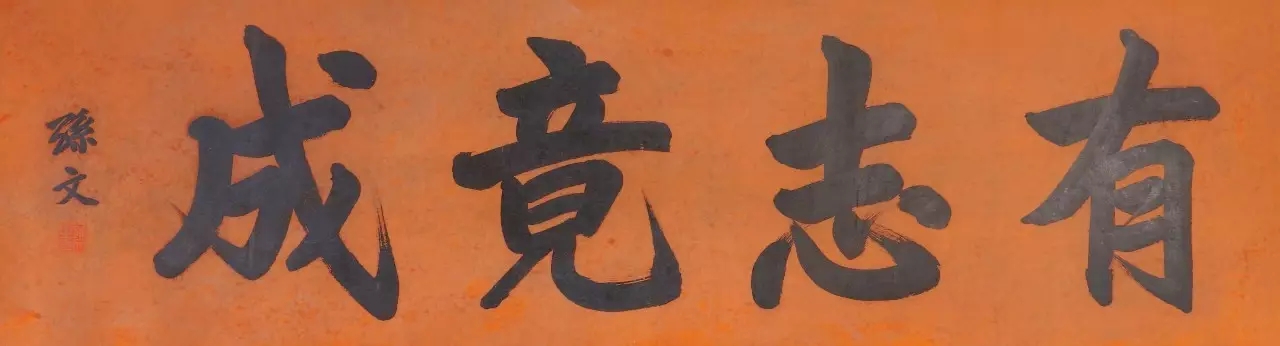 有志竟成
孫文